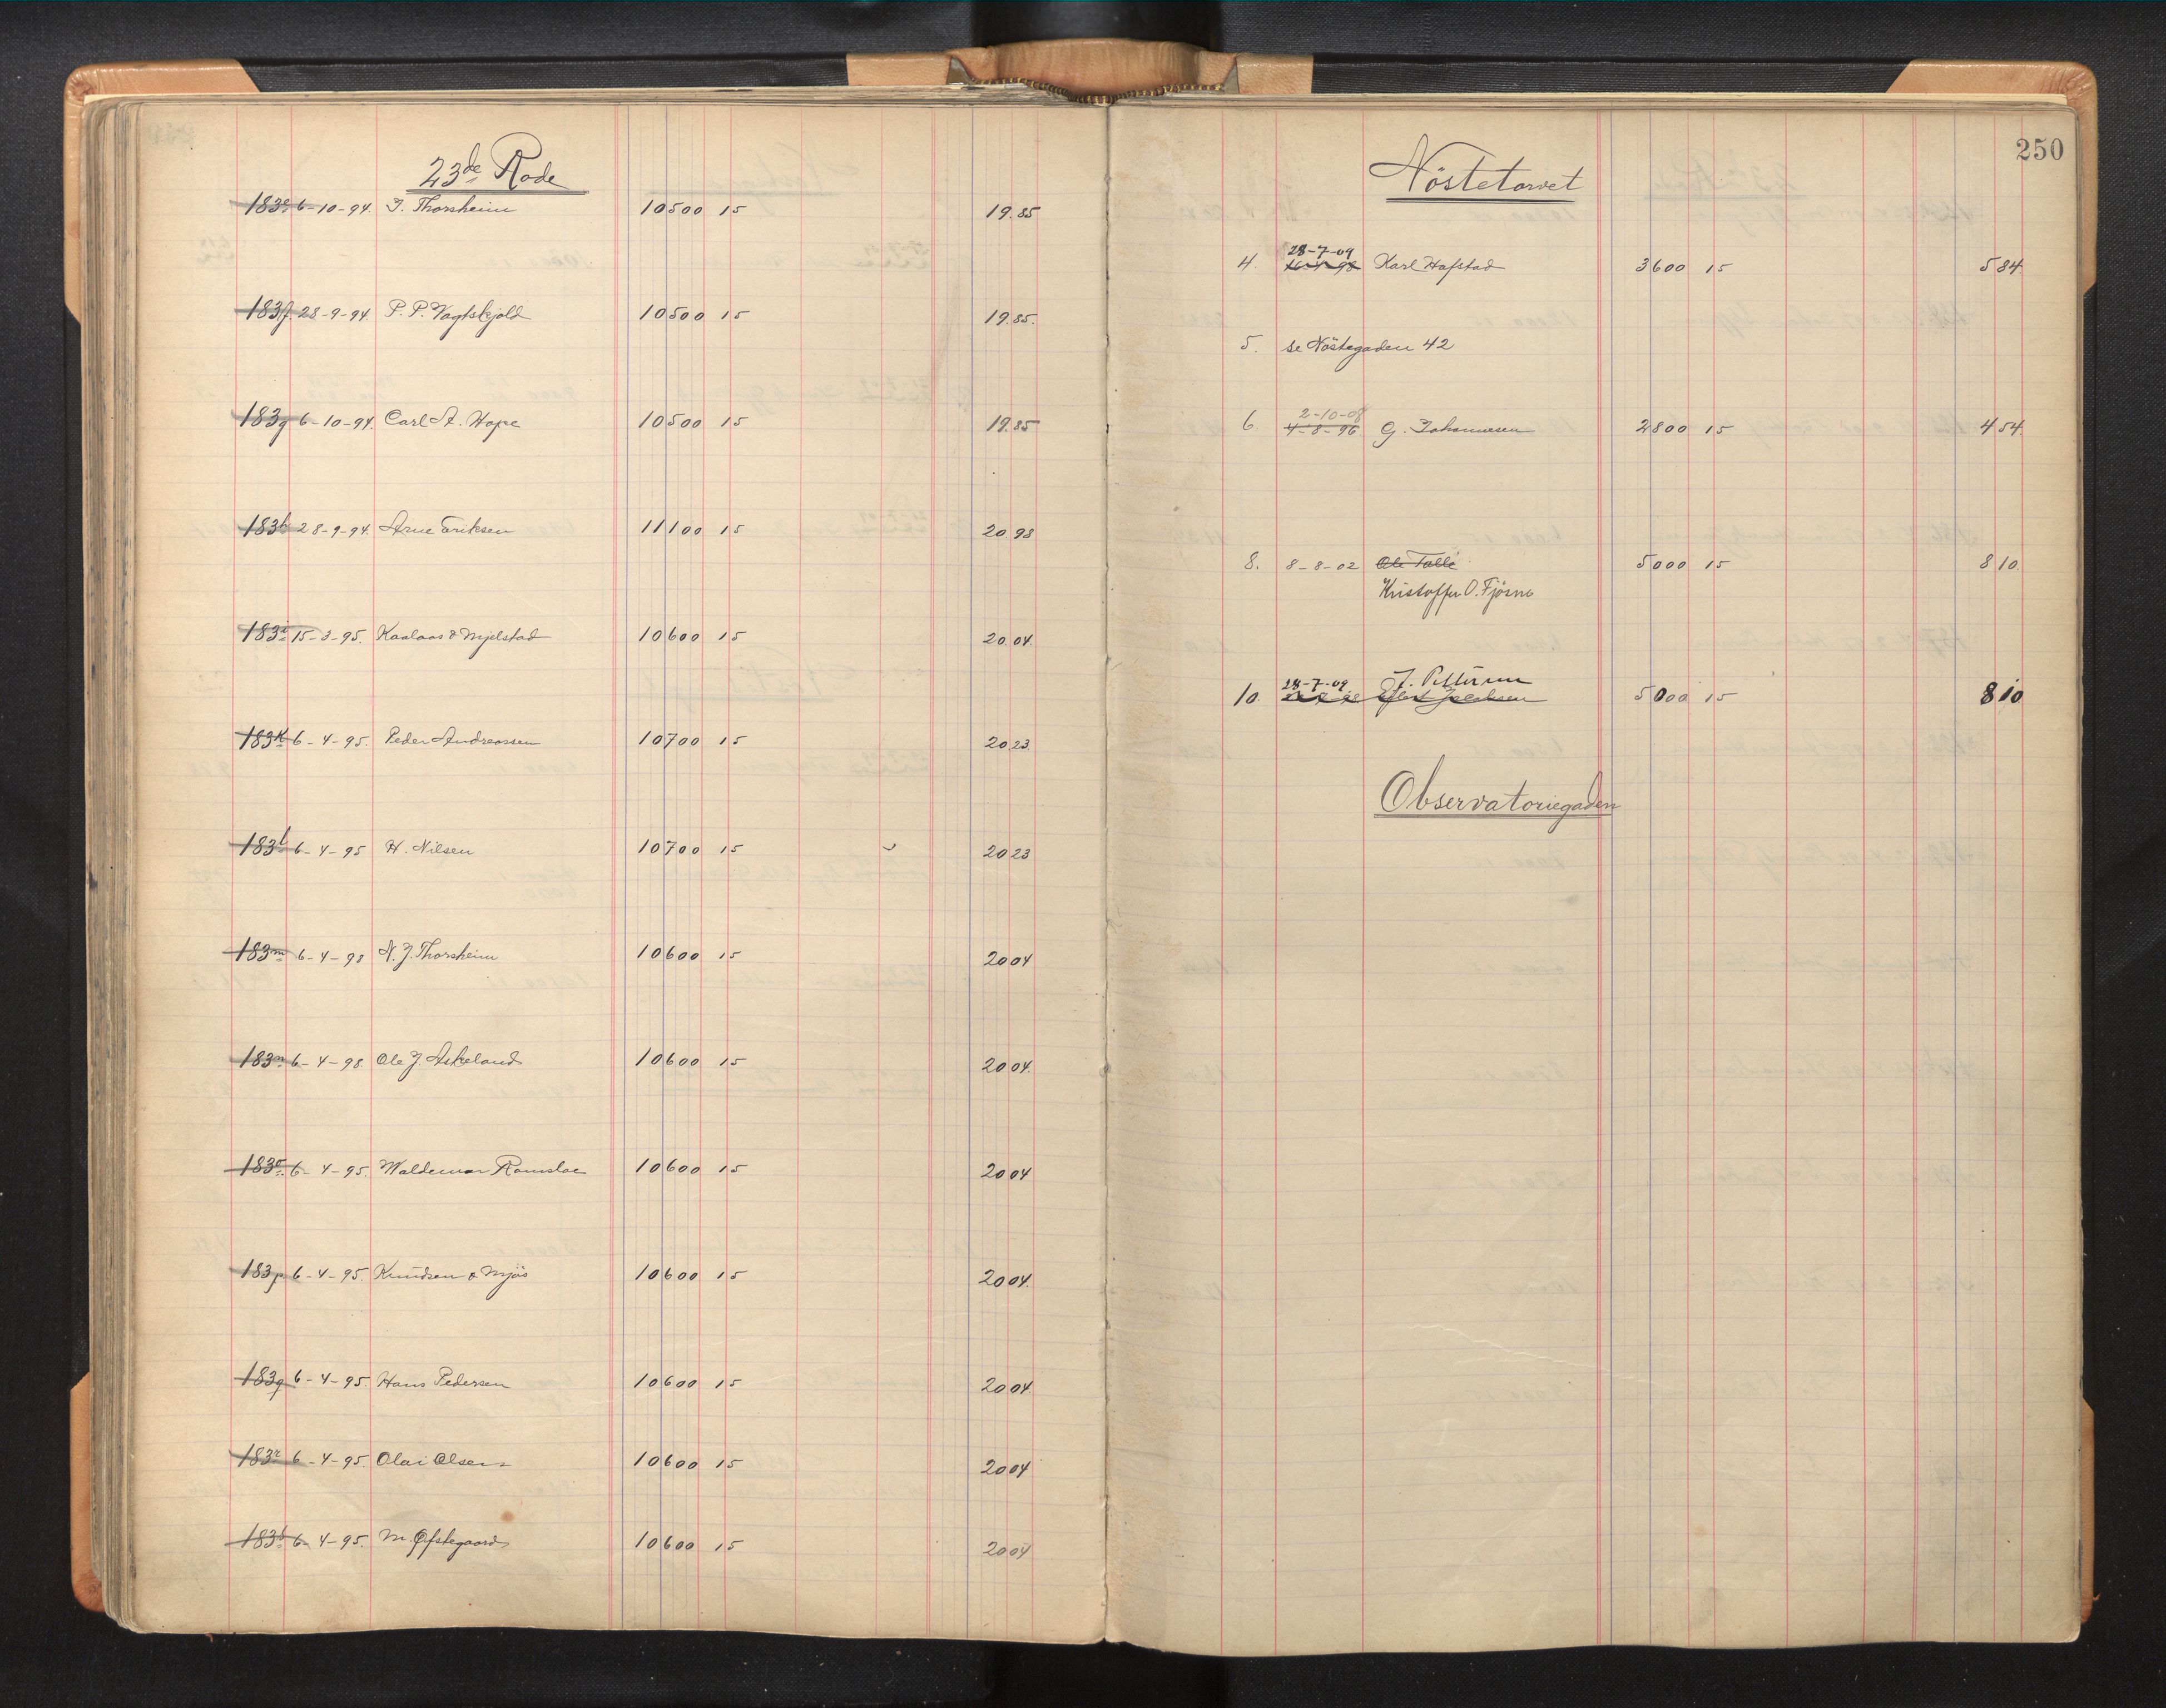 23de Rode
183e 6-10-94. J. Thorsheim 10500 15 19.85
183f. 28-9-94. P. P. Vagtskjold 10500 15 19.85.
183g 6-10-94. Carl A. Hope 10500 15 19.85
183h 28-9-94. Arne Eriksen 11100 15 20 98
183i 15-3-95. Kaalaas & Mjelstad 10600 15 20 04.
183k 6-4-95. Peder Andreassen 10700 15 20 23.
183l 6-4-95 H. Nilsen 10700 15 20 23
183m 6-4-98 N. J. Thorsheim 10600 15 20 04
183n 6-4-98 Ole J. Askeland 10600 15 20 04.
183o 6-4-95. Waldemar Ramsloe 10600 15 20 04
183p 6-4-95. Knudsen & Mjös 10600 15 20 04.
183q 6-4-95. Hans Pedersen 10600 15 20 04
183r 6-4-95. Olai Olsen 10600 15 20 04
183s 6-4-95. M. Øfstegaard 10600 15 20 04
250
Nöstetorvet
28-7-09
4. Karl Hafstad 3600 15 5 84
5. se Nöstegaden 42
2-10-08
6 4-8-96 G. Johannesen 2800 15 4 54
8. 8-8-02 Ole Tolle 5000 15 8 10.
Kristoffer O. Fjösne
28-7-09 J. Pettersen
10. 5000 15 8 10
Observatoriegaden